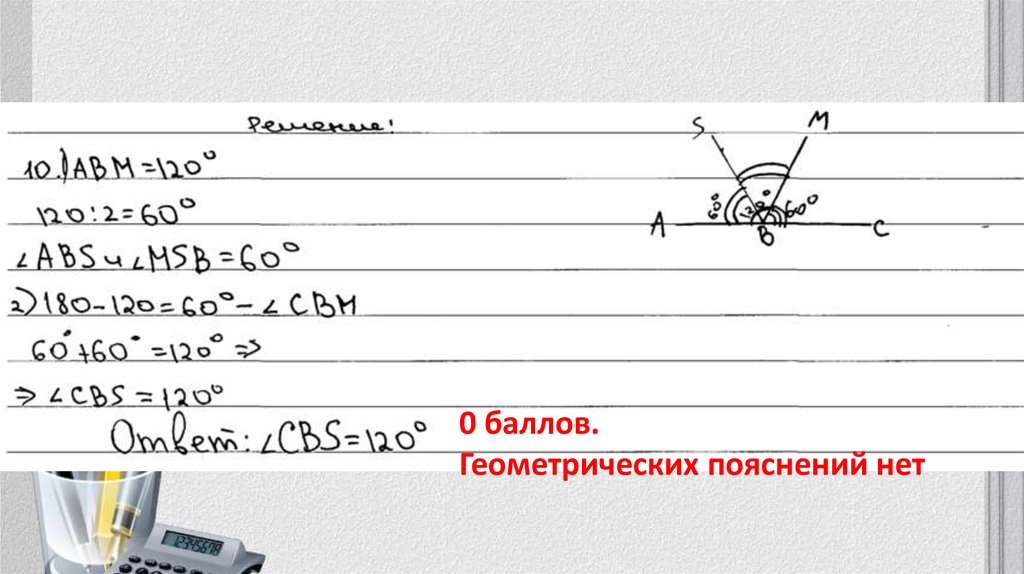 Решение:
1∠ABM=120°
120:2=60°
∠ABS и ∠MSB=60°
2) 180-120=60°-∠CBM
60°+60°=120° ⇒
⇒ ∠CBS=120°
Ответ: ∠CBS=120°
S M
60° 120° 60°
A B C
0 баллов.
Геометрических пояснений нет
12345678